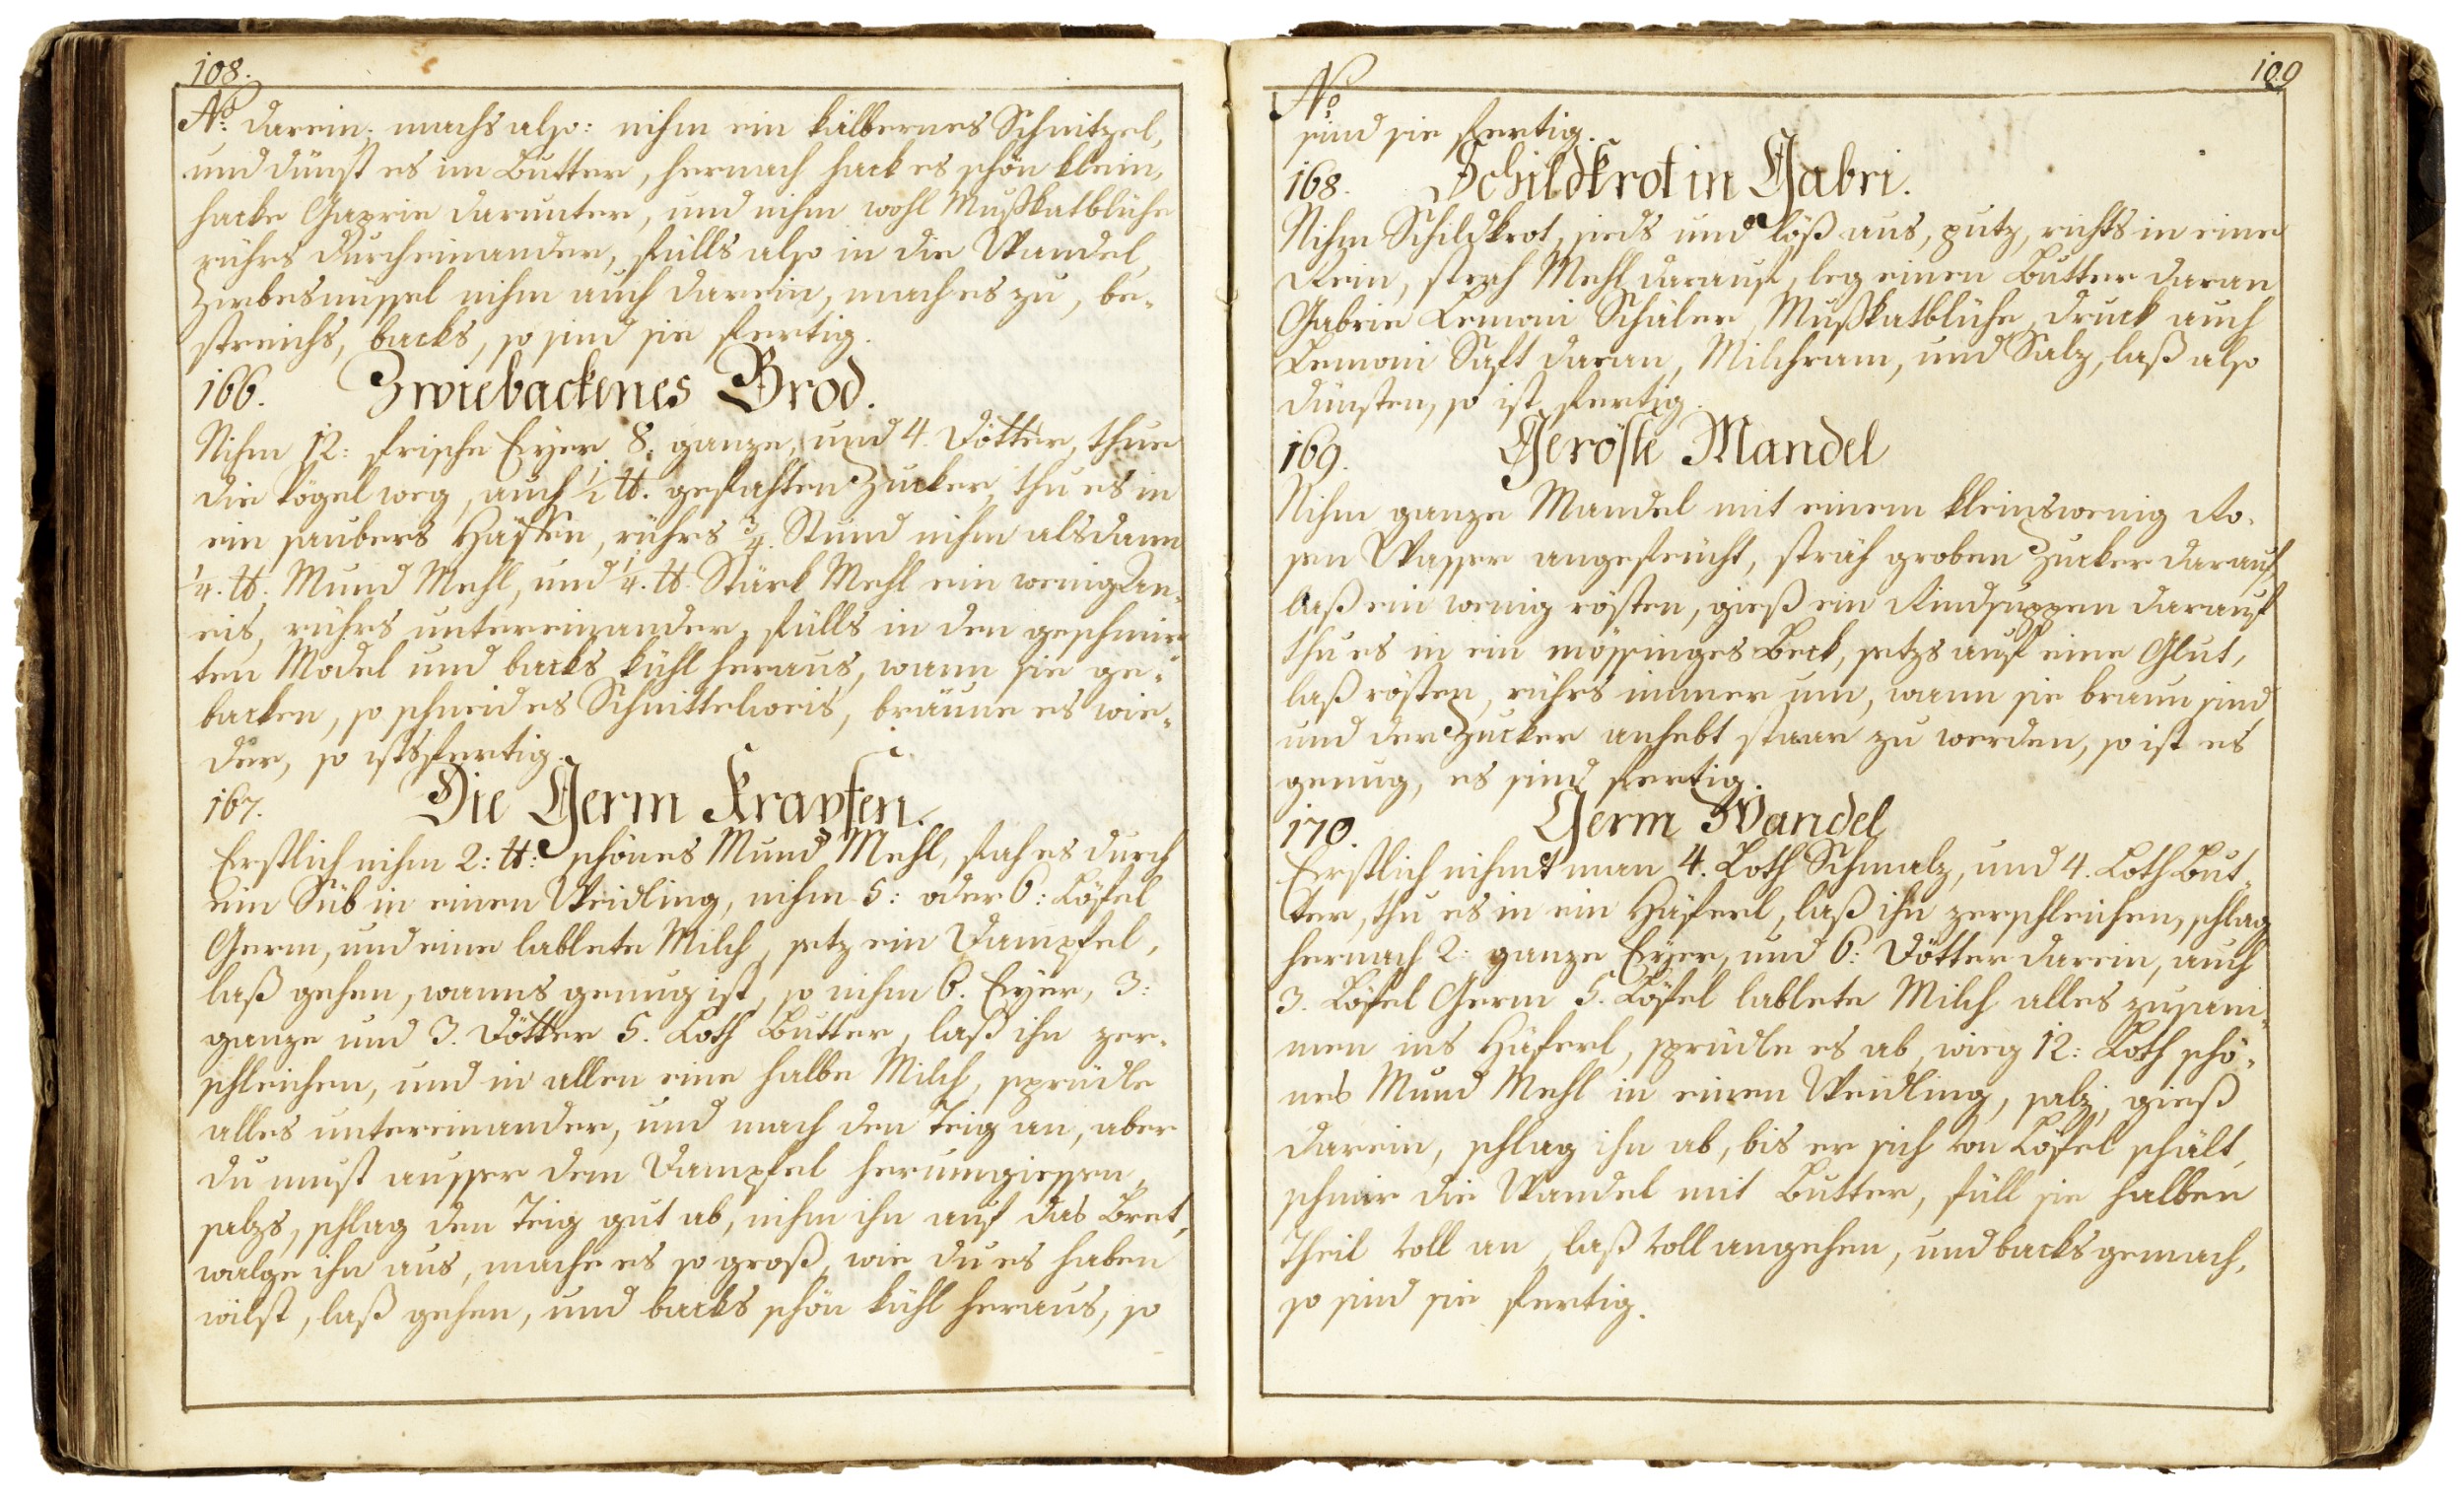 108.
No. darein; machs also: nihm ein kälbernes Schnitzel,
und dünst es im Butter, hernach hack es schön klein,
hacke Gaprie darunter, und nihm wohl Mußkatblühe
rührs durcheinander, fülls also in die Wandel,
Zirbesnüssel nihm auch darein, mach es zu, be-
streichs, backs, so sind sie fertig.
166. Zwiebackenes Brod.
Nihm 12: frische Eyer 8. ganze, und 4. Dötter, thue
die Vögel weg, auch ½ ℔. gefähten Zucker, thu es in
ein saubers Häffen, rührs ¾. Stund nihm alsdann
¼. ℔. Mund Mehl, und ¼. ℔. Stärk Mehl ein wenig An-
eis, rührs untereinander, fülls in den geschmir-
ten Model und backs kühl heraus, wann sie ge-
backen, so schneid es Schnittelweis, bräune es wie-
der, so ists fertig.
167. Die Germ Krapfen.
Erstlich nihm 2: ℔: schönes Mund Mehl, fäh es durch
ein Süb in einen Weidling, nihm 5: oder 6: Löfel
Germ, und eine lablete Milch, setz ein Dampfel,
laß gehen, wanns genug ist, so nihm 6. Eyer, 3:
ganze und 3. Dötter 5. Loth Butter, laß ihn zer-
schleichen, und in allen eine halbe Milch, sprüdle
alles untereinander, und mach den Teig an, aber
du must ausser dem Dampfel herumgiessen,
salzs, schlag den Teig gut ab, nihm ihn auf das Bret,
walge ihn aus, mache es so groß, wie du es haben
wilst, laß gehen, und backs schön kühl heraus, so
109
No
sind sie fertig.
168. Schildkrot in Gabri.
Nihm Schildkrot, sieds und löß aus, putz, richts in eine
Rein, sträh Mehl darauf, leg einen Butter daran
Gabrie Lemoni Schäler, Mußkatblühe, druck auch
Lemoni Saft daran, Milchram, und Salz, laß also
dünsten, so ist fertig.
169. Geröste Mandel
Nihm ganze Mandel mit einem kleinswenig Ro-
sen Wasser angefeücht, sträh groben Zucker darauf,
laß ein wenig rösten, gieß ein Rindsuppen darauf
thu es in ein mössinges Beck, setzs auf eine Glut,
laß rösten, rührs immer um, wann sie braun sind,
und der Zucker anhebt staar zu werden, so ist es
genug, es sind fertig.
170. Germ Wandel
Erstlich nihmt man 4. Loth Schmalz, und 4. Loth But-
ter, thu es in ein Häferl, laß ihn zerschleichen, schlag
hernach 2: ganze Eyer, und 6: Dötter darein, auch
3. Löfel Germ 5. Löfel lablete Milch alles zusam-
men ins Häferl, sprüdle es ab, wieg 12: Loth schö-
nes Mund Mehl in einen Weidling, salz, gieß
darein, schlag ihn ab, bis er sich von Löfel schält,
schmir die Wandel mit Butter, füll sie halben
Theil voll an, laß voll angehen, und backs gemach,
so sind sie fertig.